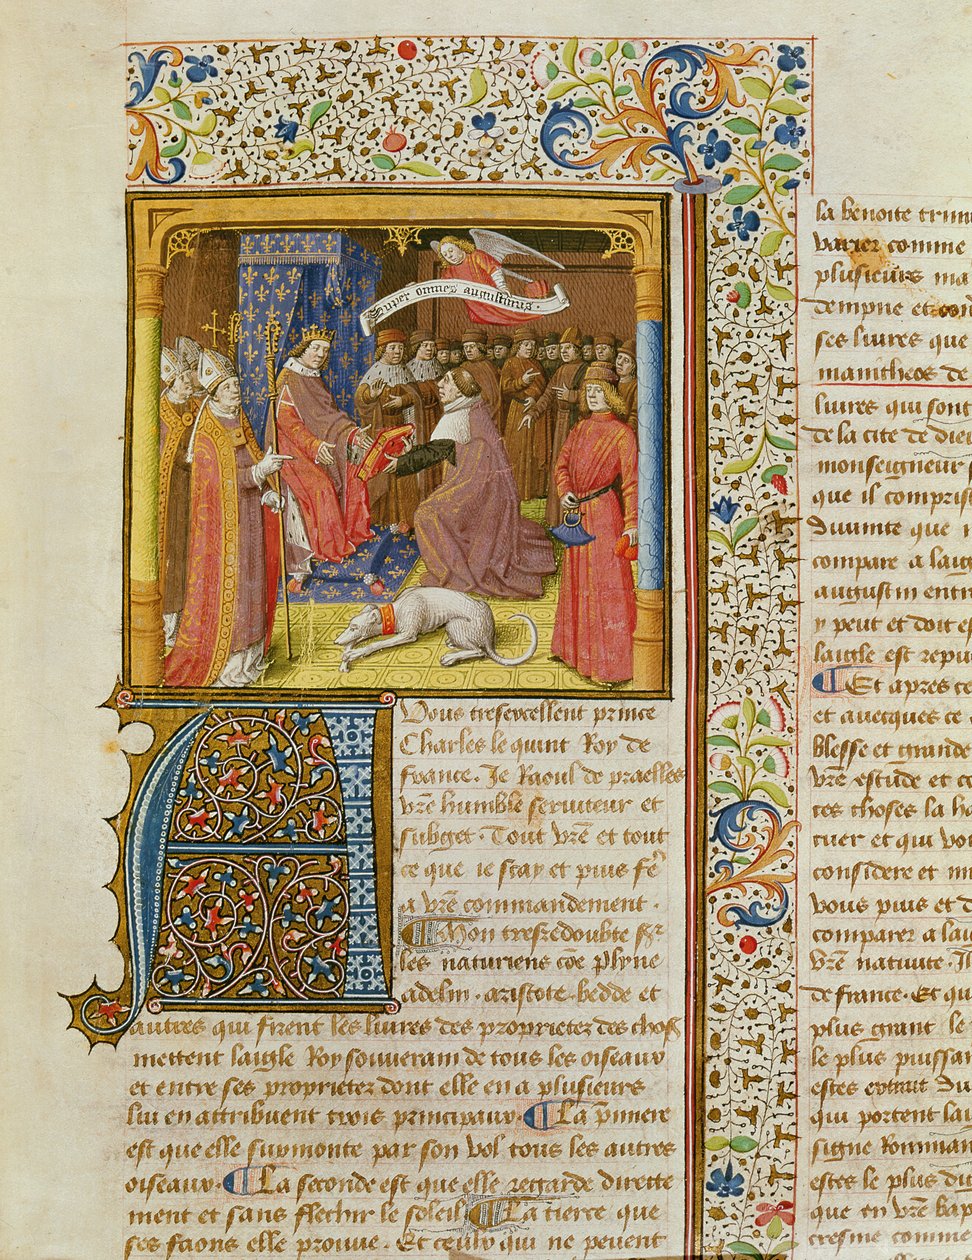 Super omnes augustinus
A Vous tresexcellent prince
Charles le quint Roy de
france. Je Raoul de praelles
vr̄e humble seruiteur et
subget Tout vr̄e et tout
ce que ie scay et puis fẽ
a vr̄e commandement.
Mon tresredoubte
les naturiens cõe plyne
adelin. aristote. bedde et
autres qui firent les liures des proprietez des chos
mettent laigle Roy souuerain de tous les oiseaux
et entre ses proprietez dont elle en a plusieurs
lui en attribuent trois principaux. La p̄miere
est que elle surmonte par son vol tous les autres
oiseaux. La seconde est que elle regarde directe
ment et sans flechir le soleil. La tierce que
ses faons elle prouue. Et ceulx qui ne peuent
la benoite trini
varier comme
plusieurs ma
dempne et con
ses liures que
manicheos de
liures qui sont
de la cite de dieu
monseigneur
que il compris
diuinite que
compare a laig
augustin entre
y peut et doit es
laigle est repu
Et apres ce
et auecques ce
blesse et grande
vr̄e estude et
tes choses la
tuer et qui vou
considere et
vous puis et d
comparer a lau
vr̄e natiuite. Il
de france. Et qu
plus grant le
le plus puissan
estes extrait du
qui portent lai
signe Rommain
estes le plus
que en vr̄e bap
cresme comme